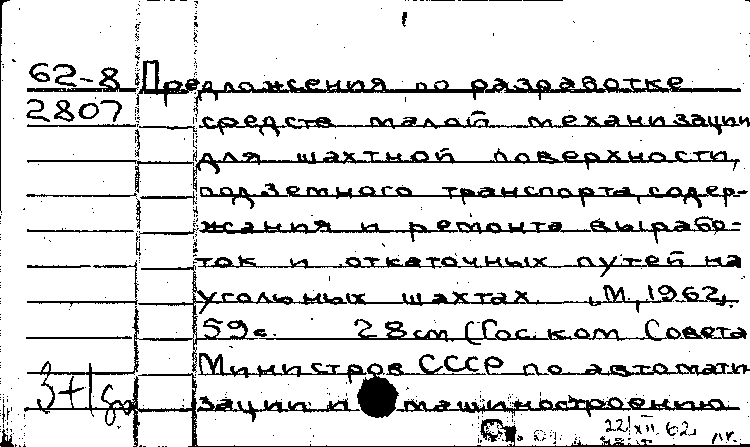 62-8 Предложения по разработке
2807 средств малой механизации
для шахтной поверхности,
подземного транспорта, содер-
жания и ремонта вырабо-
ток и откаточных путей на
угольных шахтах. М, 1962.
59с. 28см (Гос. ком Совета
Министров СССР по автомати
зации и машиностроению
22/XII 62